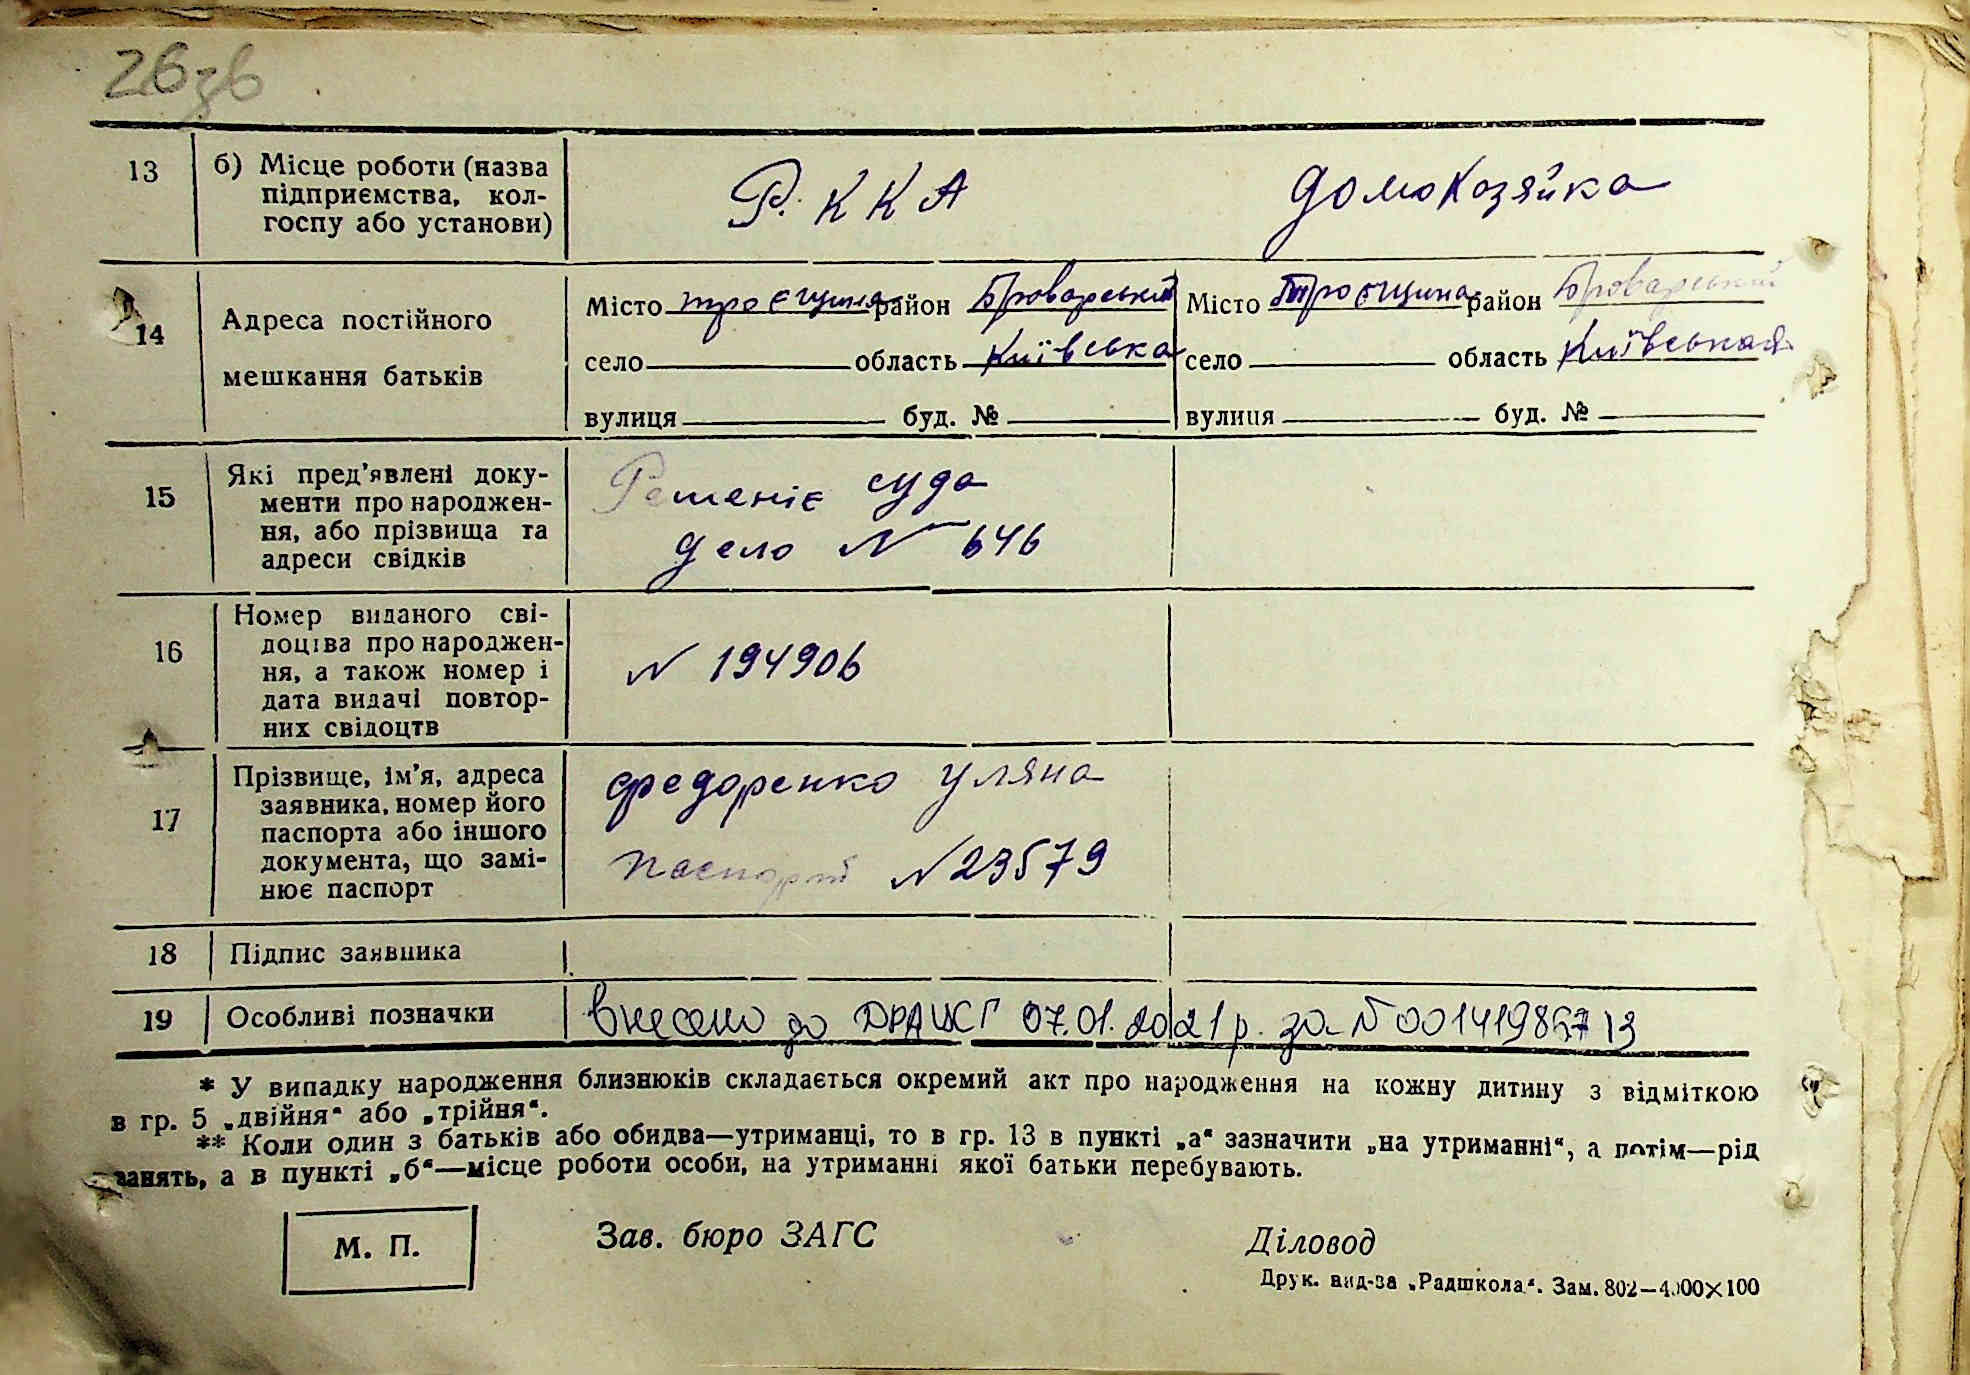 26зв
13 б) Місце роботи (назва
підприємства, кол-
госпу або установи)
Р. К К А домохозяйка
14 Адреса постійного
мешкання батьків
Місто троєщина район Броварський Місто Троєщина район Броварський
село область Київська село область Київськая
вулиця буд. № вулиця буд. №
15 Які пред'явлені доку-
менти про народжен-
ня, або прізвища та
адреси свідків
Решеніє суда
дело N 646
16 Номер виданого сві-
доцтва про народжен-
ня, а також номер і
дата видачі повтор-
них свідоцтв
N 194906
17 Прізвище, ім'я, адреса
заявника, номер його
паспорта або іншого
документа, що замі-
нює паспорт
Федоренко Уляна
паспорт N 23579
18 Підпис заявника
19 Особливі позначки внесено до ДРАЦСГ 07.01.2021 р. за N
* У випадку народження близнюків складається окремий акт про народження на кожну дитину з відміткою
в гр. 5 „двійня“ або „трійня“.
** Коли один з батьків або обидва—утриманці, то в гр. 13 в пункті „а“ зазначити „на утриманні“, а потім—рід
занять, а в пункті „б“—місце роботи особи, на утриманні якої батьки перебувають.
М. П. Зав. бюро ЗАГС Діловод
Друк. вид-ва „Радшкола“. Зам. 802—4000×100